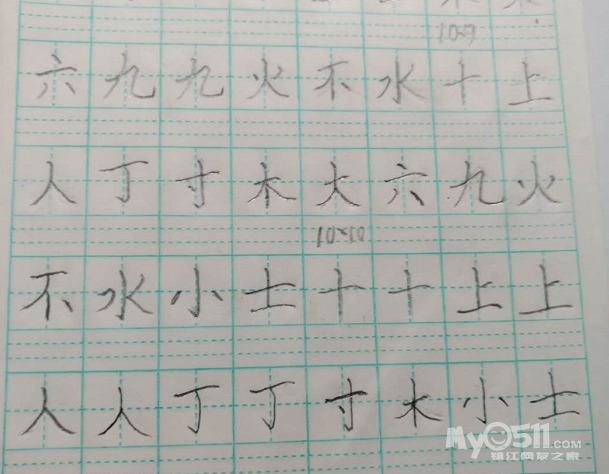 10-9
六九九火不水十上
人丁寸木大六九火
10-10
不水小士十十上上
人人丁丁寸木小士
My0511.com
镇江网友之家